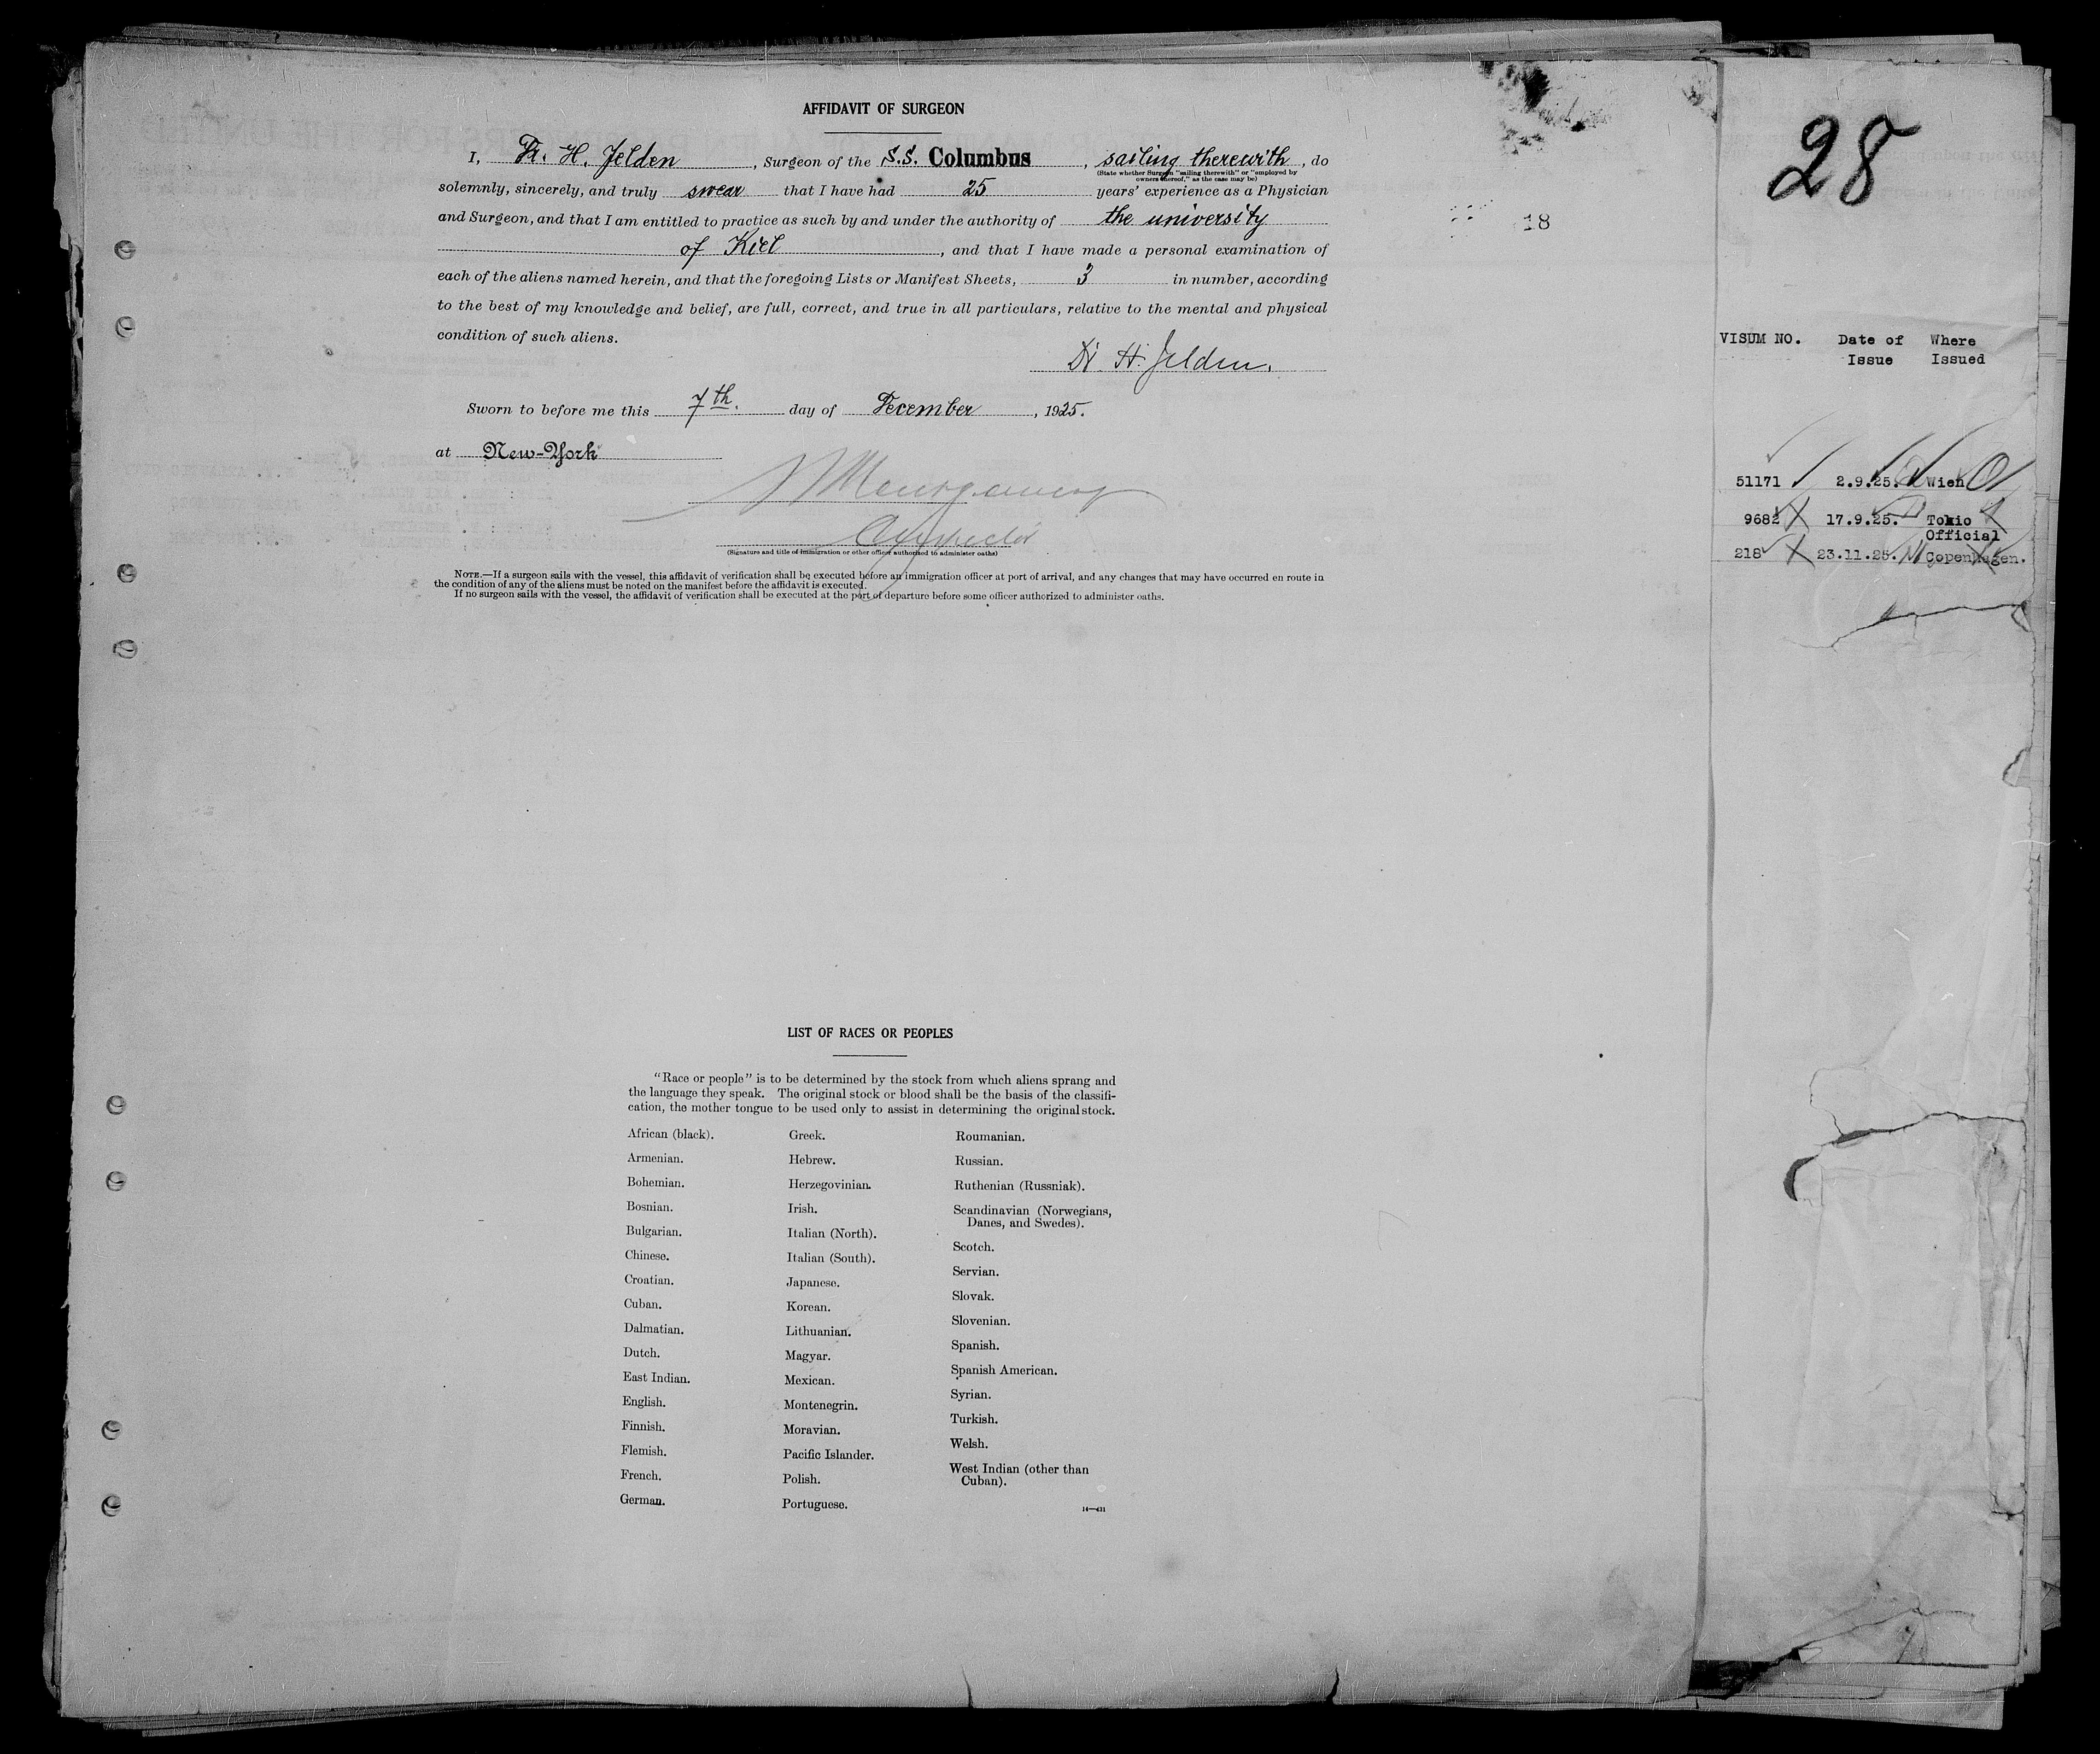 AFFIDAVIT OF SURGEON
I, Dr. H. Jelden, Surgeon of the S.S. Columbus, sailing therewith, do
(State whether Surgeon "sailing therewith" or "employed by
owners thereof," as the case may be)
solemnly, sincerely, and truly swear that I have had 25 years' experience as a Physician
and Surgeon, and that I am entitled to practice as such by and under the authority of the university
of Kiel, and that I have made a personal examination of
each of the aliens named herein, and that the foregoing Lists or Manifest Sheets, 3 in number, according
to the best of my knowledge and belief, are full, correct, and true in all particulars, relative to the mental and physical
condition of such aliens.
Dr. H. Jelden.
Sworn to before me this 7th. day of December, 1925.
at New-York
Inspector
(Signature and title of immigration or other officer authorized to administer oaths)
NOTE.—If a surgeon sails with the vessel, this affidavit of verification shall be executed before an immigration officer at port of arrival, and any changes that may have occurred en route in
the condition of any of the aliens must be noted on the manifest before the affidavit is executed.
If no surgeon sails with the vessel, the affidavit of verification shall be executed at the port of departure before some officer authorized to administer oaths.
18
28
VISUM NO. Date of Where
Issue Issued
51171 2.9.25. Wien
9682 17.9.25. Tokio
Official
218 23.11.25. Copenhagen.
LIST OF RACES OR PEOPLES
"Race or people" is to be determined by the stock from which aliens sprang and
the language they speak. The original stock or blood shall be the basis of the classifi-
cation, the mother tongue to be used only to assist in determining the original stock.
African (black).
Armenian.
Bohemian.
Bosnian.
Bulgarian.
Chinese.
Croatian.
Cuban.
Dalmatian.
Dutch.
East Indian.
English.
Finnish.
Flemish.
French.
German.
Greek.
Hebrew.
Herzegovinian.
Irish.
Italian (North).
Italian (South).
Japanese.
Korean.
Lithuanian.
Magyar.
Mexican.
Montenegrin.
Moravian.
Pacific Islander.
Polish.
Portuguese.
Roumanian.
Russian.
Ruthenian (Russniak).
Scandinavian (Norwegians,
Danes, and Swedes).
Scotch.
Servian.
Slovak.
Slovenian.
Spanish.
Spanish American.
Syrian.
Turkish.
Welsh.
West Indian (other than
Cuban).